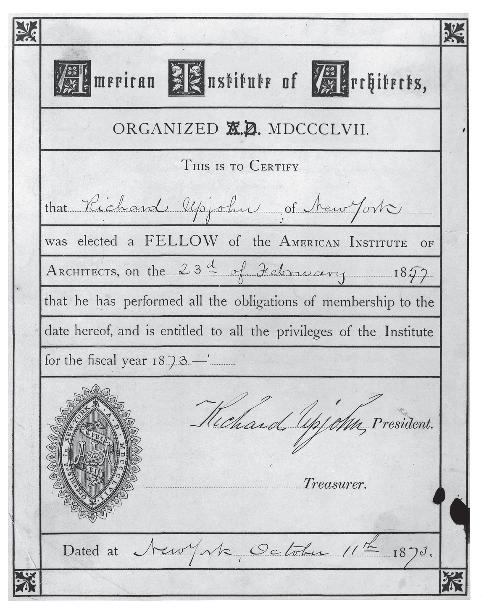 American Institute of Architects,
ORGANIZED A.D. MDCCCLVII.
THIS IS TO CERTIFY
that Richard Upjohn of New York
was elected a FELLOW of the AMERICAN INSTITUTE OF
ARCHITECTS, on the 23d of February 1857
that he has performed all the obligations of membership to the
date hereof, and is entitled to all the privileges of the Institute
for the fiscal year 1873—
Richard Upjohn, President.
Treasurer.
Dated at New York, October 11th 1873.